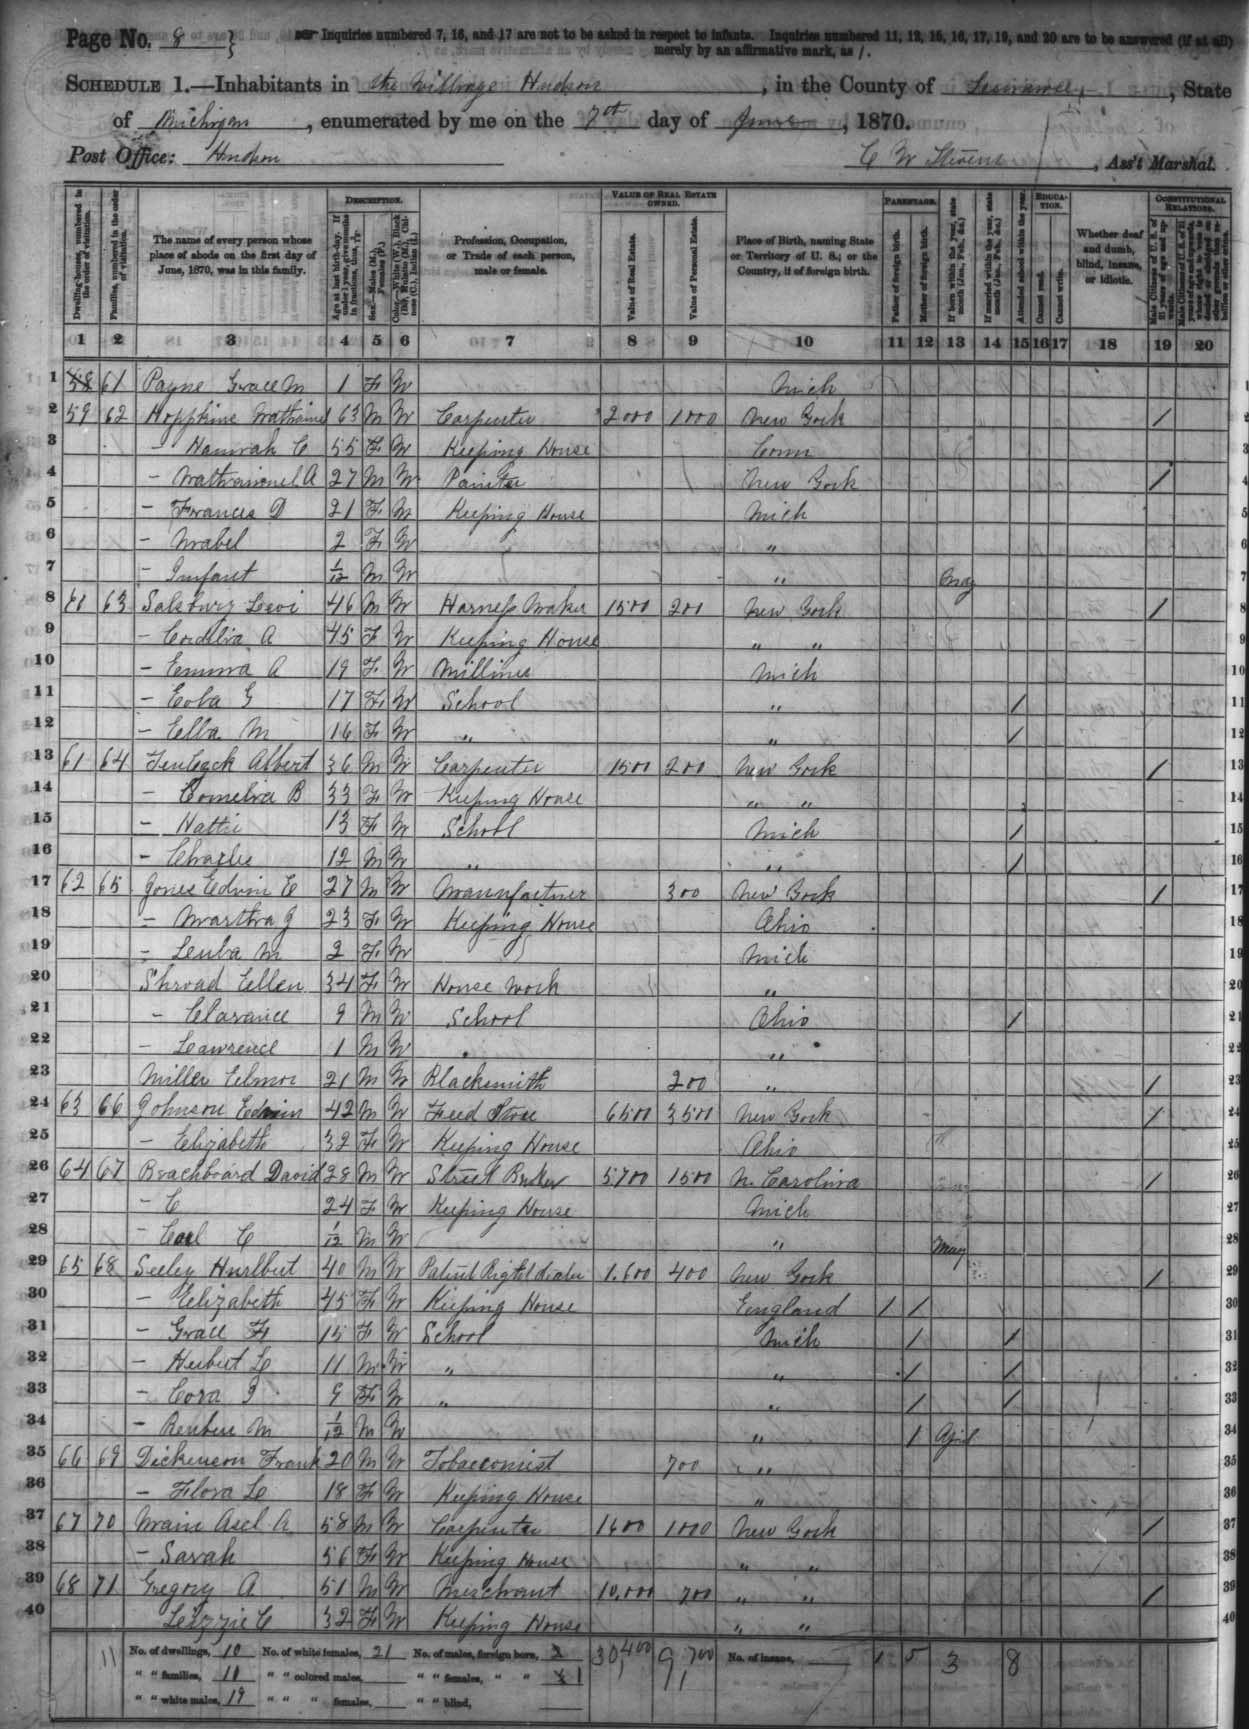 Page No. 8
Inquiries numbered 7, 16, and 17 are not to be asked in respect to infants. Inquiries numbered 11, 12, 15, 16, 17, 19, and 20 are to be answered (if at all)
merely by an affirmative mark, as /.
SCHEDULE 1.—Inhabitants in the Village Hudson, in the County of Lenawee, State
of Michigan, enumerated by me on the 7th day of June, 1870.
Post Office: Hudson C W Stevens, Ass't Marshal.
Dwelling-houses, numbered in the order of visitation.
Families, numbered in the order of visitation.
The name of every person whose place of abode on the first day of June, 1870, was in this family.
DESCRIPTION.
Age at last birth-day. If under 1 year, give months in fractions, thus, 3/12
Sex.—Males (M.), Females (F.)
Color.—White (W.), Black (B.), Mulatto (M.), Chinese (C.), Indian (I.)
Profession, Occupation, or Trade of each person, male or female.
VALUE OF REAL ESTATE OWNED.
Value of Real Estate.
Value of Personal Estate.
Place of Birth, naming State or Territory of U. S.; or the Country, if of foreign birth.
PARENTAGE.
Father of foreign birth.
Mother of foreign birth.
If born within the year, state month (Jan., Feb., &c.)
If married within the year, state month (Jan., Feb., &c.)
Attended school within the year.
EDUCATION.
Cannot read.
Cannot write.
Whether deaf and dumb, blind, insane, or idiotic.
CONSTITUTIONAL RELATIONS.
Male Citizens of U. S. of 21 years of age and upwards.
1 2 3 4 5 6 7 8 9 10 11 12 13 14 15 16 17 18 19 20
1 58 61 Payne Grace M 1 F W Mich 1
2 59 62 Hoppkins Nathaniel 63 M W Carpenter 2000 1000 New York / 2
3 – Hannah C 55 F W Keeping House Conn 3
4 – Nathaniel A 27 M W Painter New York / 4
5 – Frances D 21 F W Keeping House Mich 5
6 – Mabel 2 F W " 6
7 – Infant 1/12 M W " May 7
8 61 63 Salsbury Levi 46 M W Harness Maker 1500 200 New York / 8
9 – Cordelia A 45 F W Keeping House " " 9
10 – Emma A 19 F W Milliner Mich 10
11 – G 17 F W School " / 11
12 – Ella M 16 F W " " / 12
13 61 64 Albert 36 M W Carpenter 1500 200 New York / 13
14 – Cornelia B 33 F W Keeping House " " 14
15 – Hattie 13 F W School Mich / 15
16 – Charles 12 M W " " / 16
17 62 65 Jones Edwin E 27 M W Manufactuer 300 New York / 17
18 – Martha J 23 F W Keeping House Ohio 18
19 – M 2 F W Mich 19
20 Shroad Ellen 34 F W House Work " 20
21 – Clarance 9 M W School Ohio / 21
22 – Lawrence 1 M W " 22
23 Miller Elmer 21 M W Blacksmith 200 " / 23
24 63 66 Johnson Edwin 42 M W Feed Store 6500 3500 New York / 24
25 – Elizabeth 32 F W Keeping House Ohio 25
26 64 67 Beachboard David 28 M W Street 5700 1500 N. Carolina / 26
27 – C 24 F W Keeping House Mich 27
28 – Carl C 1/12 M W " May 28
29 65 68 Seeley Hurlbut 40 M W Patent Right dealer 1.600 400 New York / 29
30 – Elizabeth 45 F W Keeping House England / / 30
31 – Grace F 15 F W School Mich / / 31
32 – Herbert L 11 M W " " / / 32
33 – Cora I 9 F W " " / / 33
34 – Reuben M 1/12 M W " / April 34
35 66 69 Dickenson Frank 20 M W Tobacconist 700 " 35
36 – Flora L 18 F W Keeping House " 36
37 67 70 Main Asel A 58 M W Carpenter 1600 1000 New York / 37
38 – Sarah 56 F W Keeping House " " 38
39 68 71 Gregory A 51 M W Merchant 10,000 700 " " / 39
40 Lizzie C 32 F W Keeping House " " 40
11 No. of dwellings, 10 No. of white females, 21 No. of males, foreign born, 30,400 9,700 No. of insane, 1 5 3 8
" " families, 11 " " colored males, " " females, " " 1
" " white males, 19 " " " females, " " blind,